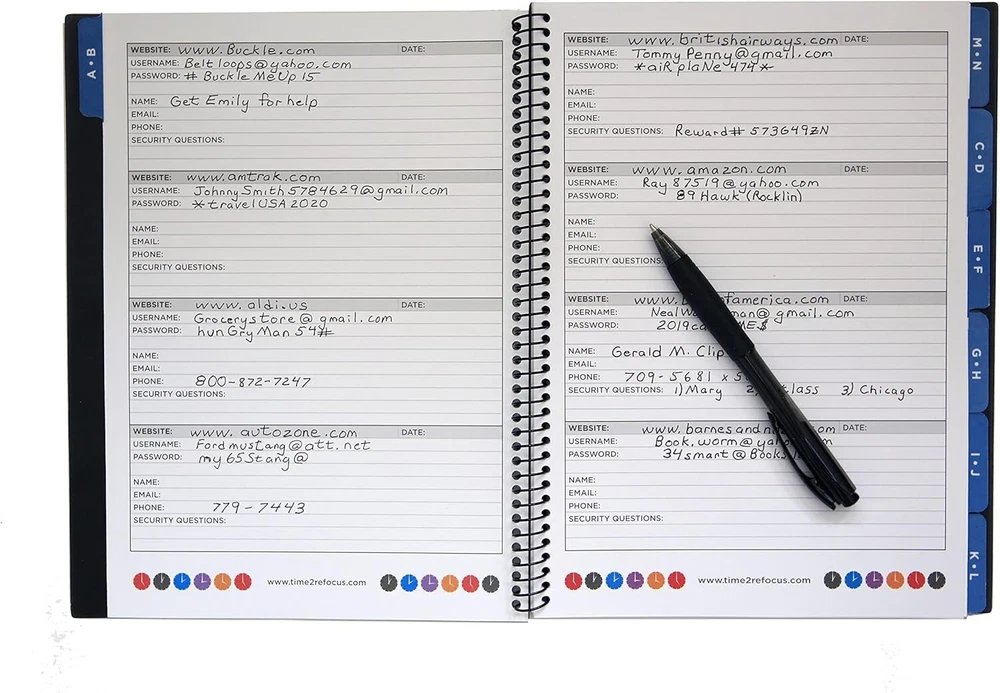 A • B
WEBSITE: www.Buckle.com DATE:
USERNAME: Beltloops@yahoo.com
PASSWORD: # BuckleMeUp15
NAME: Get Emily for help
EMAIL:
PHONE:
SECURITY QUESTIONS:
WEBSITE: www.amtrak.com DATE:
USERNAME: JohnnySmith5784629@gmail.com
PASSWORD: *travelUSA2020
NAME:
EMAIL:
PHONE:
SECURITY QUESTIONS:
WEBSITE: www.aldi.us DATE:
USERNAME: Grocerystore@gmail.com
PASSWORD: hunGryMan54#
NAME:
EMAIL:
PHONE: 800-872-7247
SECURITY QUESTIONS:
WEBSITE: www.autozone.com DATE:
USERNAME: Fordmustang@att.net
PASSWORD: my65Stang@
NAME:
EMAIL:
PHONE: 779-7443
SECURITY QUESTIONS:
www.time2refocus.com
WEBSITE: www.britishairways.com DATE:
USERNAME: TommyPenny@gmail.com
PASSWORD: *aiRplaNe474*
NAME:
EMAIL:
PHONE:
SECURITY QUESTIONS: Reward# 573649ZN
WEBSITE: www.amazon.com DATE:
USERNAME: Ray87519@yahoo.com
PASSWORD: 89 Hawk (Rocklin)
NAME:
EMAIL:
PHONE:
SECURITY QUESTIONS:
WEBSITE: www. famerica.com DATE:
USERNAME: man@gmail.com
PASSWORD: 2019 ME$
NAME: Gerald M. Clip
EMAIL:
PHONE: 709-5681 x 5
SECURITY QUESTIONS: 1) Mary 2) lass 3) Chicago
WEBSITE: www.barnesand om DATE:
USERNAME: Book.worm@yah om
PASSWORD: 34smart@Books
NAME:
EMAIL:
PHONE:
SECURITY QUESTIONS:
www.time2refocus.com
M • N
C • D
E • F
G • H
I • J
K • L